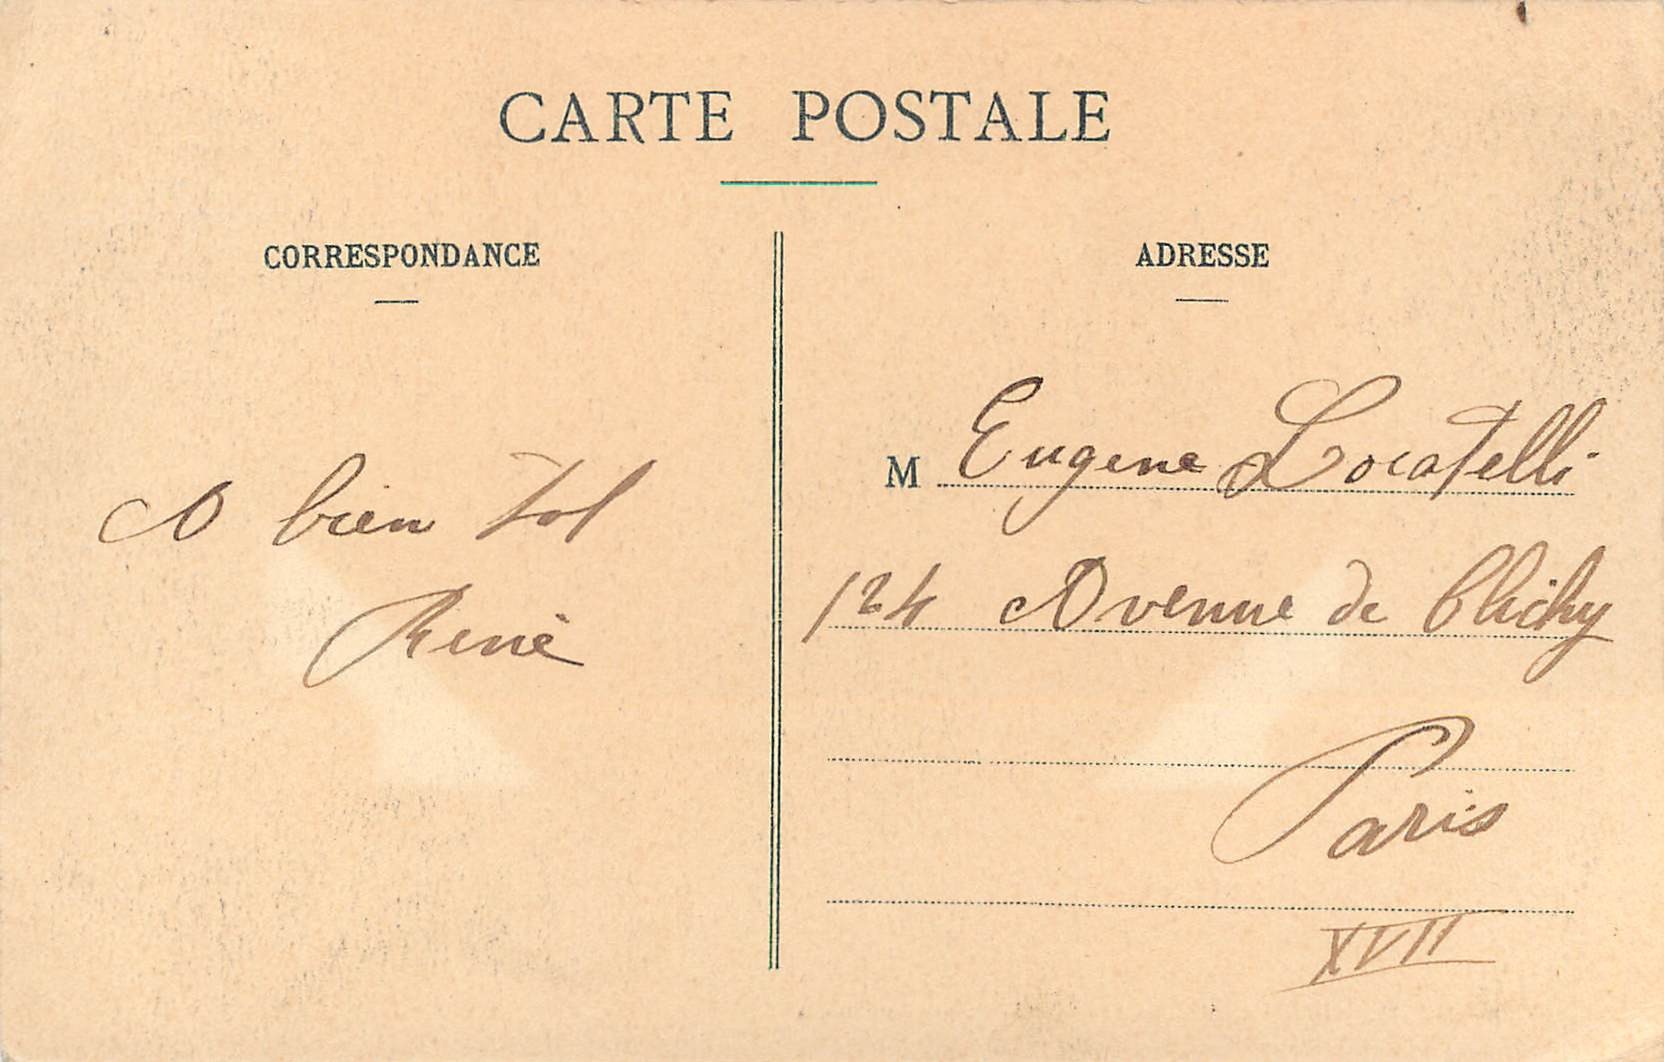 CARTE POSTALE
CORRESPONDANCE
A bien tot
René
ADRESSE
M Eugene Locatelli
124 Avenue de Clichy
Paris
XVII